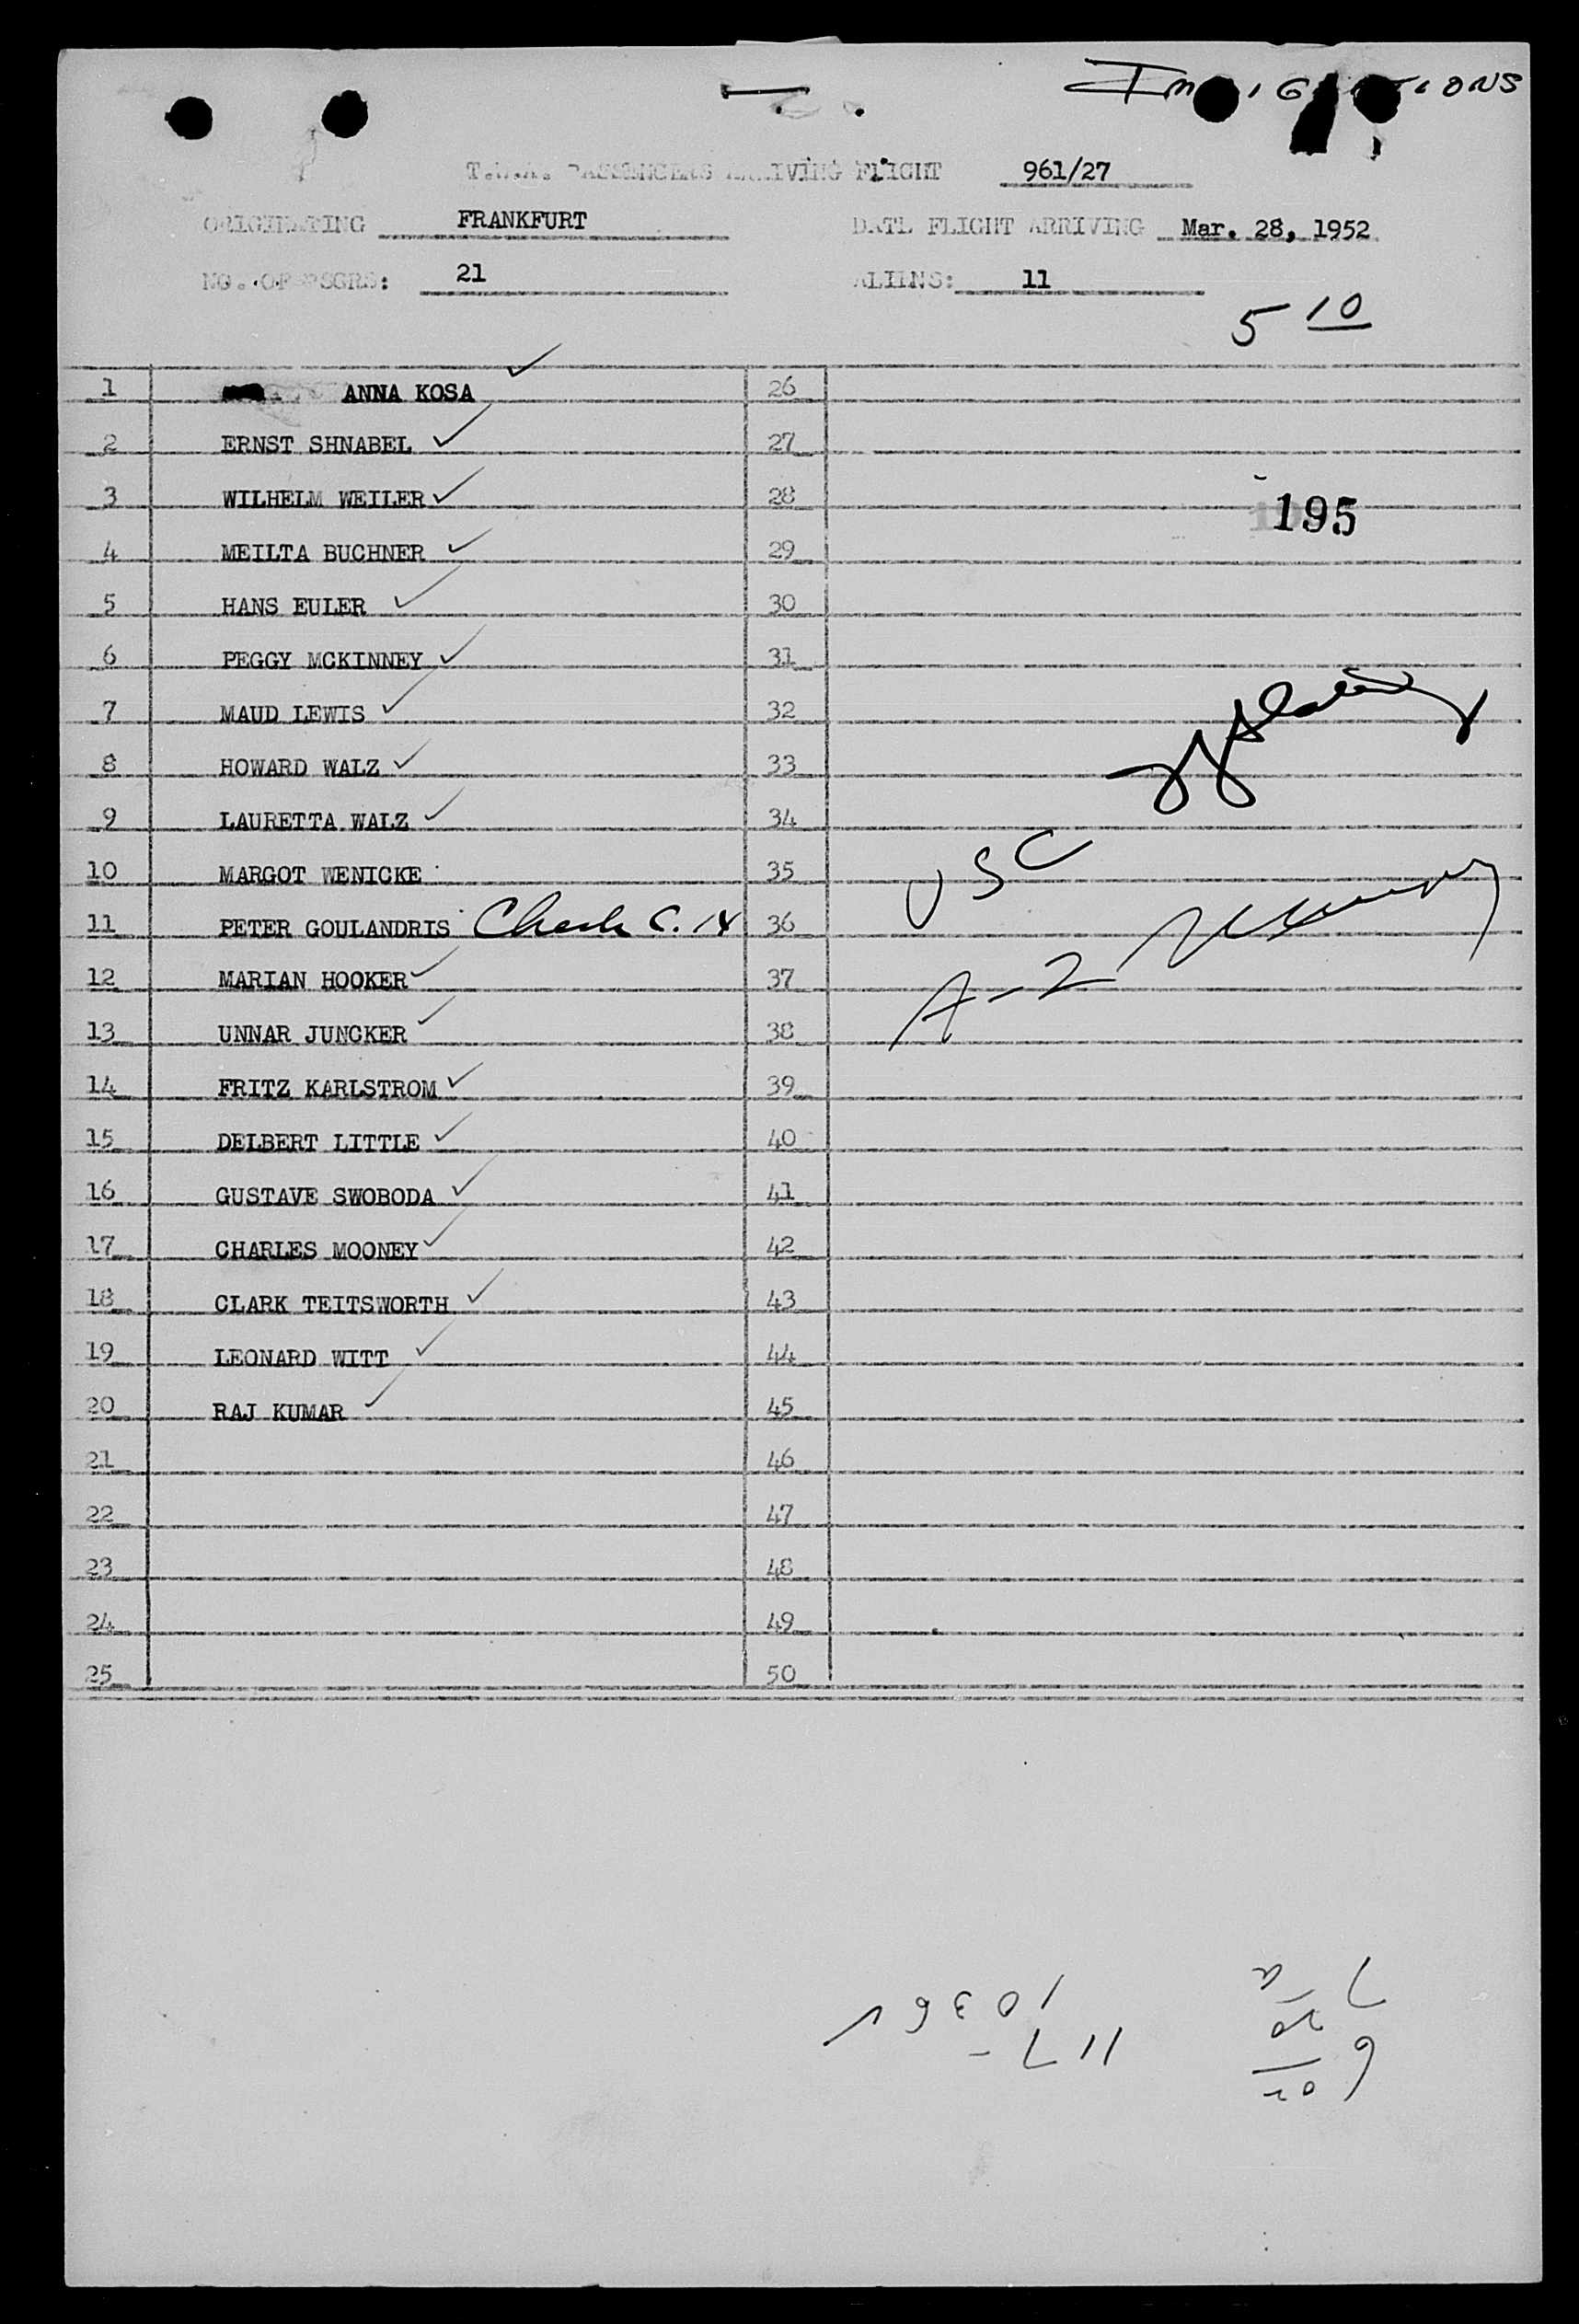 T.W.A. PASSENGERS ARRIVING FLIGHT 961/27
ORIGINATING FRANKFURT DATE FLIGHT ARRIVING Mar. 28, 1952
NO. OF PSGRS: 21 ALIENS: 11
5 10
1 ANNA KOSA 26
2 ERNST SHNABEL 27
3 WILHELM WEILER 28
195
4 MEILTA BUCHNER 29
5 HANS EULER 30
6 PEGGY MCKINNEY 31
7 MAUD LEWIS 32
8 HOWARD WALZ 33
9 LAURETTA WALZ 34
10 MARGOT WENICKE 35 USC
11 PETER GOULANDRIS Check C. 36
12 MARIAN HOOKER 37 A-2
13 UNNAR JUNCKER 38
14 FRITZ KARLSTROM 39
15 DELBERT LITTLE 40
16 GUSTAVE SWOBODA 41
17 CHARLES MOONEY 42
18 CLARK TEITSWORTH 43
19 LEONARD WITT 44
20 RAJ KUMAR 45
21 46
22 47
23 48
24 49
25 50